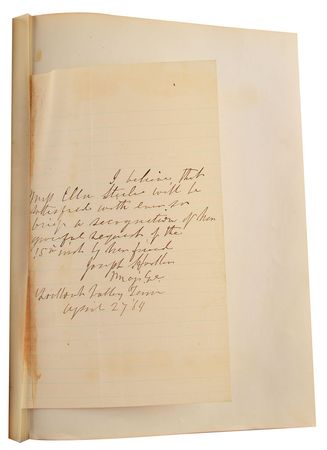 I believe that
Miss Ella Steele will be
satisfied with even so
brief a recognition of her
special request of the
15th inst by her friend
Joseph Hooker
Maj Ge
Lookout Valley Tenn
April 27 '64